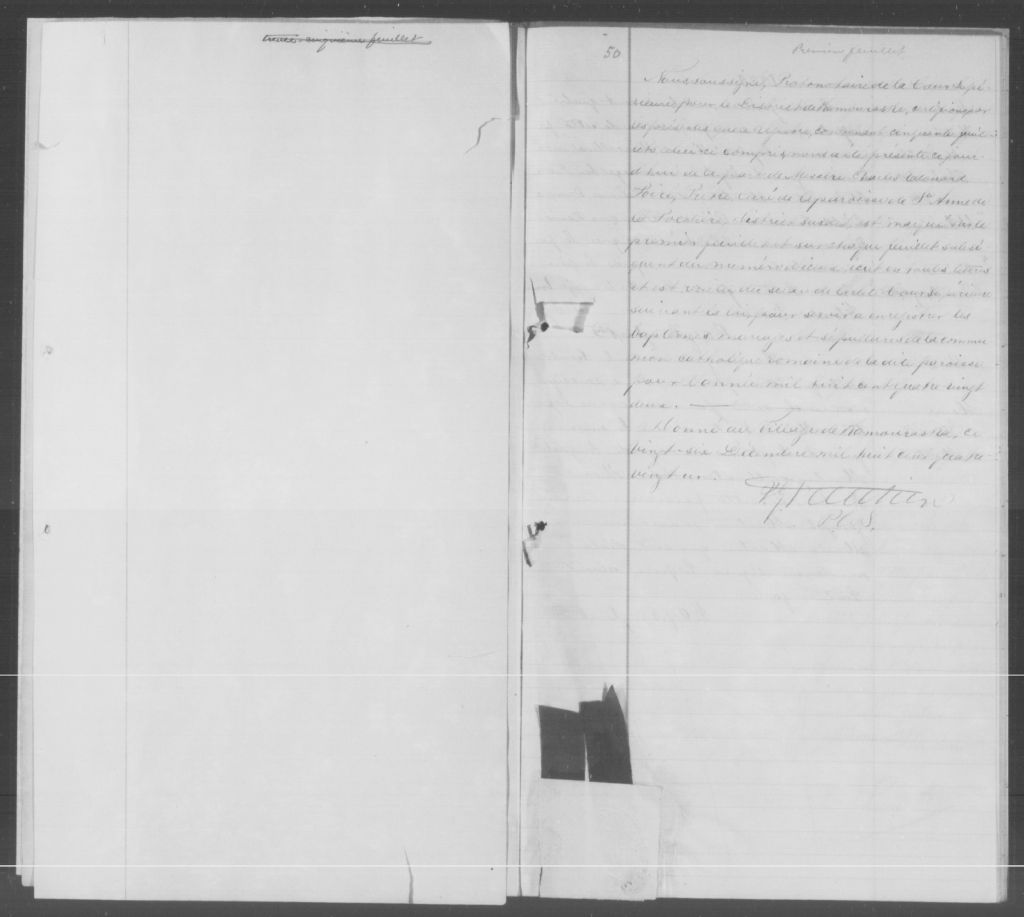 trente-cinquième feuillet
50
Premier feuillet
Nous soussigné, Protonotaire de la Cour Supé-
rieure, pour le District de Kamouraska, certifions par
les présentes que ce régistre, contenant cinquante feuil-
lets celui-ci compris, nous a été présenté ce jour
d'hui de la part de Messire Charles Edouard
Poiré, Prêtre, Curé de la paroisse de Ste Anne de
la Pocatière, district susdit, est marqué sur le
premier feuillet et sur chaque feuillet subsé-
quent du numéro d'iceux écrit en toutes lettres
et est revêtu du sceau de la dite Cour Supérieure
suivant la loi, pour servir à enregistrer les
baptêmes, mariages et sépultures de la commu-
nion catholique romaine de la dite paroisse
pour l'année mil huit cent quatre vingt
deux.
Donné au Village de Kamouraska, ce
vingt-six Décembre mil huit cent quatre-
vingt un.
P. C. S.